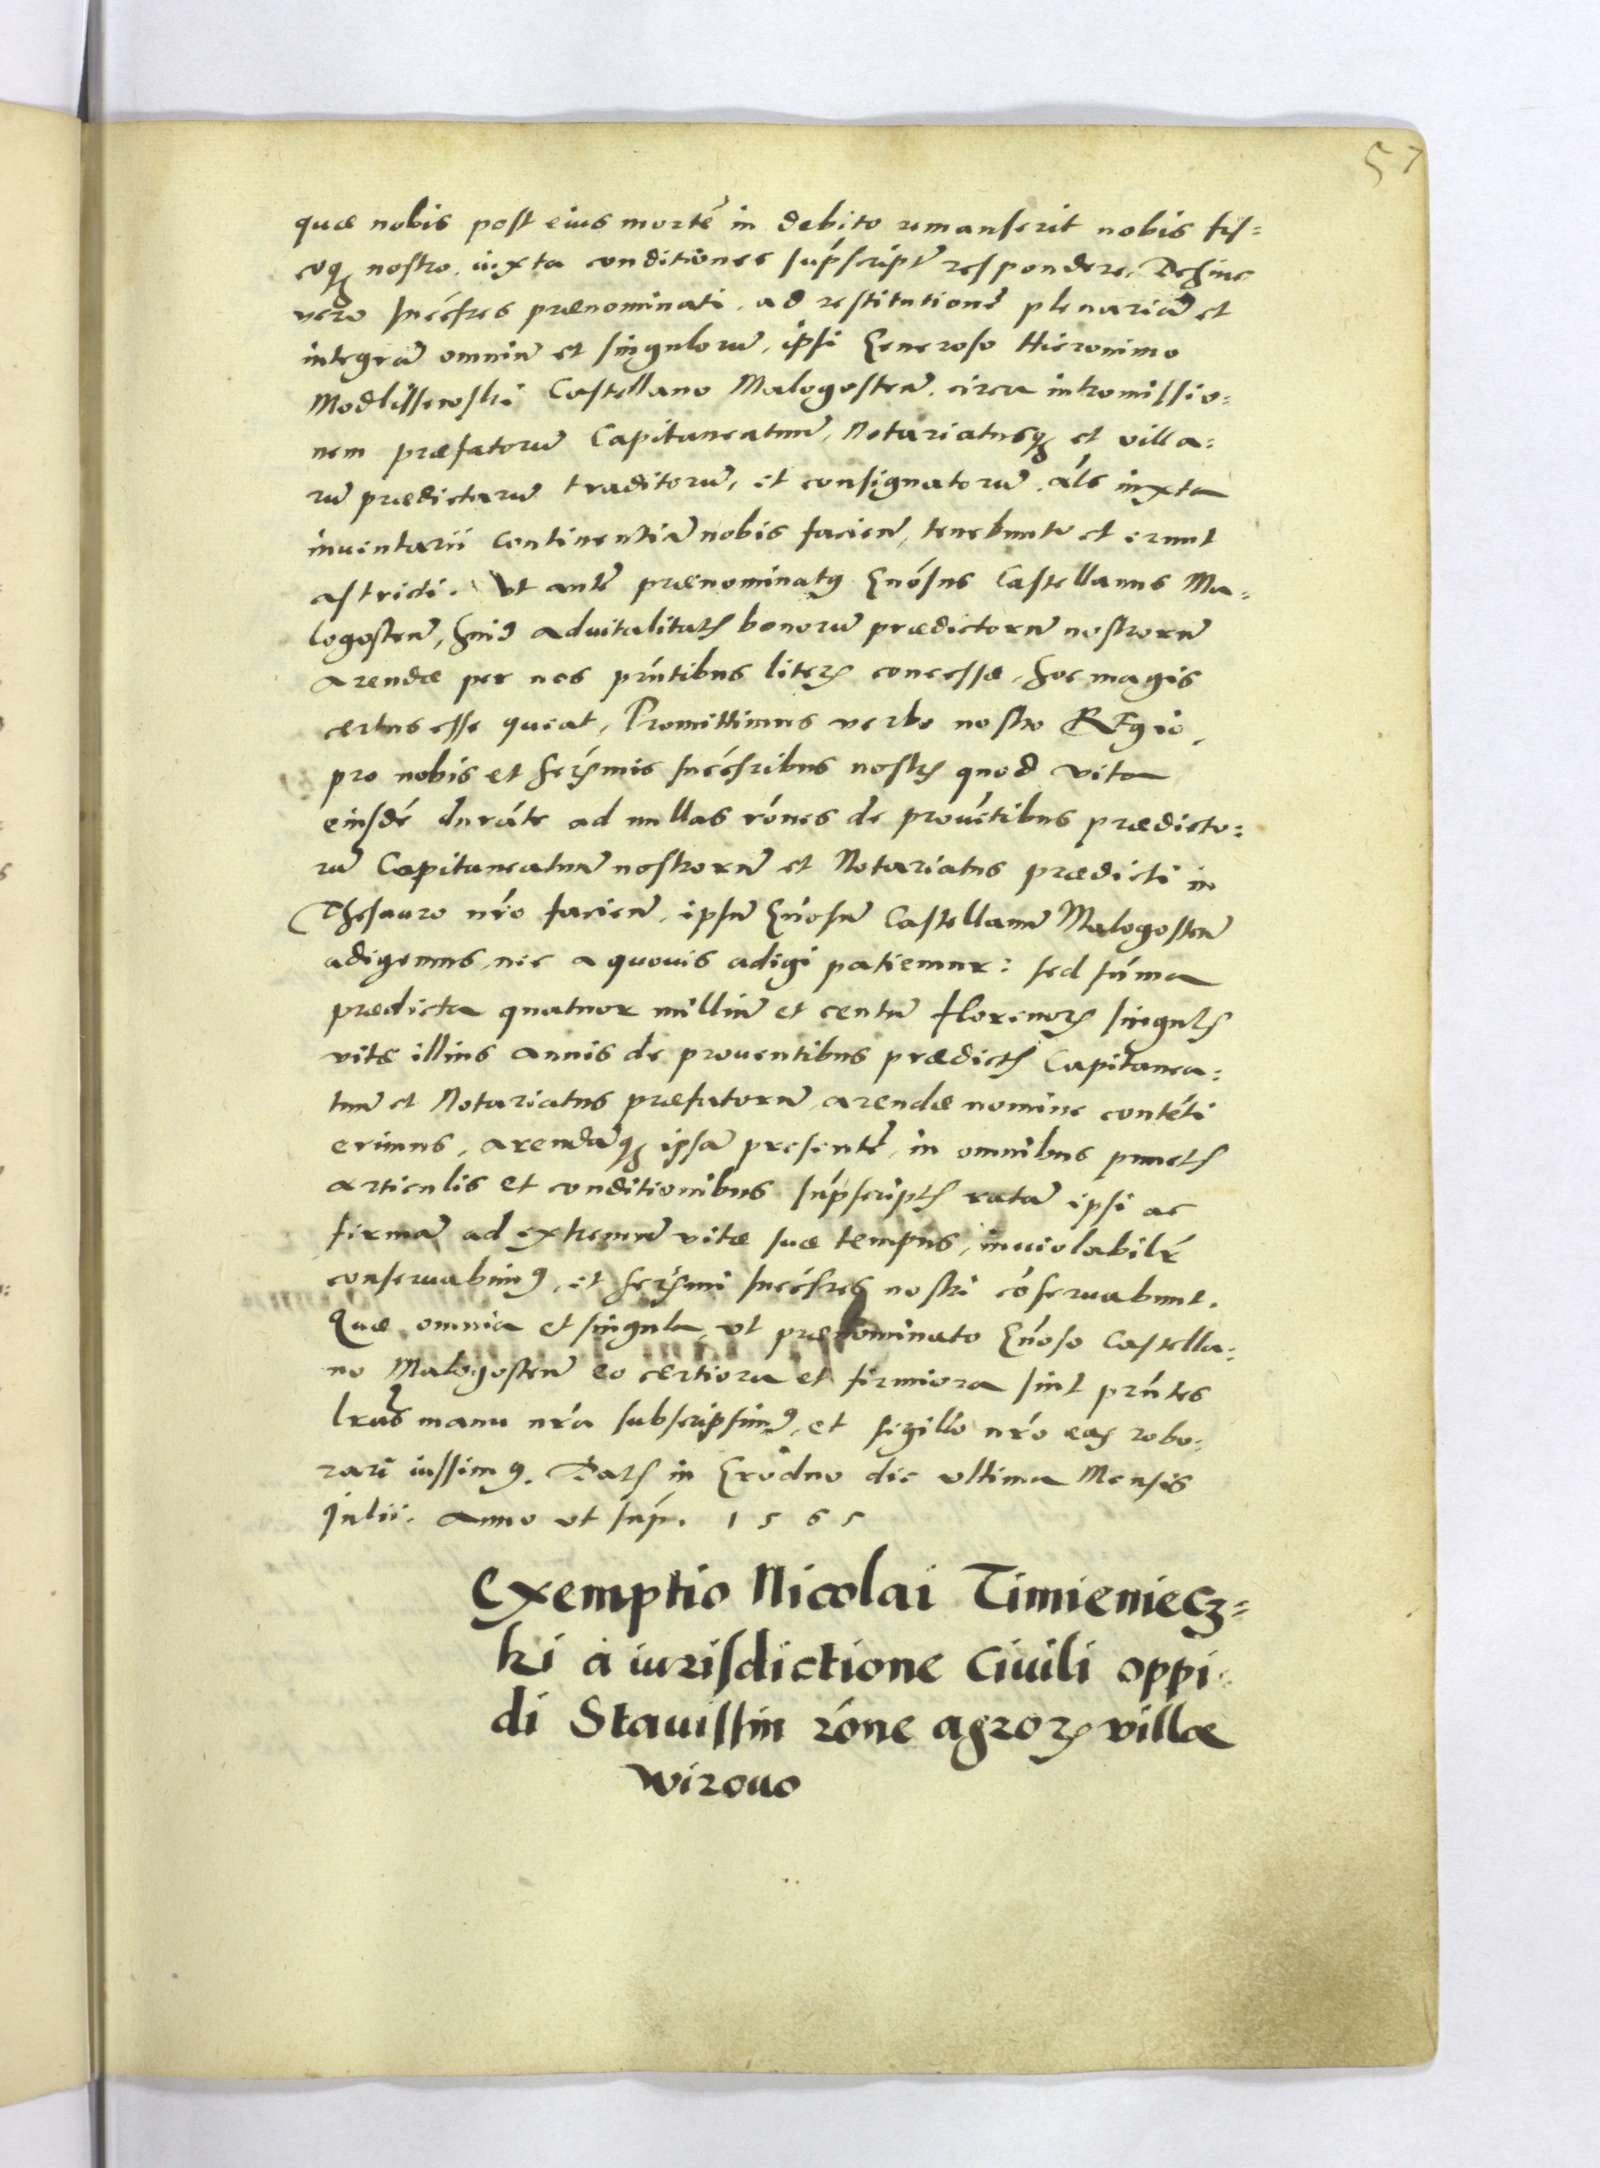 57
quæ nobis post eius mortē in debito remanserit nobis fis=
coq₃ nostro iuxta conditiones supscript respondere. Dehinc
vero succ̄res prænominati, ad restitutionē plenariā et
integrā omniū et singulorū, ipsi Generoso Hieronimo
Modlissewski Castellano Malogosteñ. circa intromissio=
nem præfatorū Capitaneatuū, Notariatusq₃ et villa=
rū prædictarū traditorū, et consignatorū, als iuxta
inventarii continentiā nobis facieñ, tenebunt et erunt
astricti. Vt autē prænominatꝰ Gnōsus Castellanus Ma=
logosteñ, huiꝰ aduitalitatꝭ bonorū prædictorū nostrorū
arendæ per nos pn̄tibus literꝭ concessæ, hoc magis
certus esse queat, Promittimus verbo nostro REgio,
pro nobis et Serꝭmis succ̄ribus nostrꝭ quod vita
eiusdē durāte ad nullas rōnes de provētibus prædicto=
rū Capitaneatuū nostrorū et Notariatus prædicti in
Thesauro nr̄o facieñ, ipsū Gnōsum Castellanū Malogosteñ
adigemus, nec a quovis adigi patiemur: sed sūma
prædicta quatuor milliū et centū florenorꝝ singulꝭ
vitæ illius annis de proventibus prædictꝭ Capitanea=
tuū et Notariatus præfatorū, arendæ nomine contēti
erimus, arendāq₃ ipsā presentē, in omnibus punctꝭ
articulis et conditionibus sup̄scriptꝭ ratā ipsi ac
firmā ad extremū vitæ suæ tempus, inuiolabilr̄
conseruabimꝰ, et Serꝭmi succ̄res nostri cōseruabunt.
Quæ omnia et singula, vt prænominato Gnōso Castella=
no Malogosteñ eo certiora et firmiora sint pn̄tes
lr̄as manu nr̄a subscripsimꝰ, et sigillo nr̄o eas robo=
rari iussimꝰ. Datꝭ in Grodno die vltima Mensis
Julii. Anno vt sup̄. 1565
Exemptio Nicolai Timieniecz=
ki à iurisdictione Ciuili oppi=
di Stauissin rōne agroꝝ villæ
wirouo